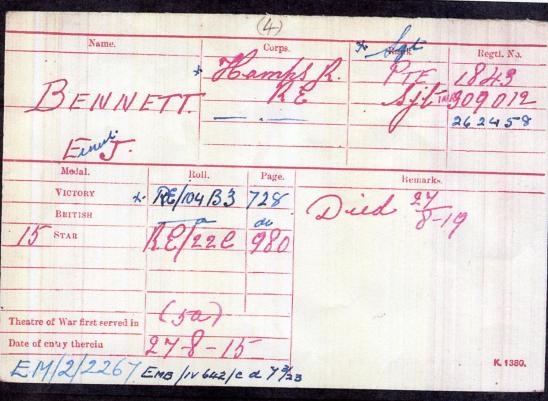 (4)
Name. Corps. Rank. Regtl. No.
* Sgt
BENNETT. * Hamps R. PTE 1849
R E Sjt 309012
262458
J.
Medal. Roll. Page. Remarks.
VICTORY * RE/104 B3 728 Died 27/8-19
BRITISH do do
15 STAR RE/22C 980
Theatre of War first served in (5a)
Date of entry therein 27-8-15
K. 1380.
EM/2/2267 EMB/IV 642/c d